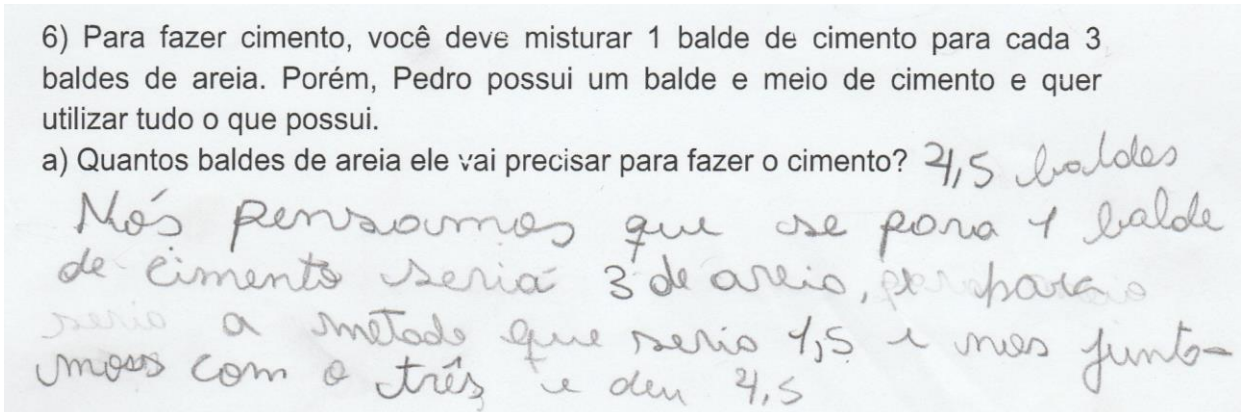 6) Para fazer cimento, você deve misturar 1 balde de cimento para cada 3
baldes de areia. Porém, Pedro possui um balde e meio de cimento e quer
utilizar tudo o que possui.
a) Quantos baldes de areia ele vai precisar para fazer o cimento? 4,5 baldes
Nós pensamos que se para 1 balde
de cimento seria 3 de areia, para
seria a metade que seria 1,5 e nos junta-
mos com o três e deu 4,5